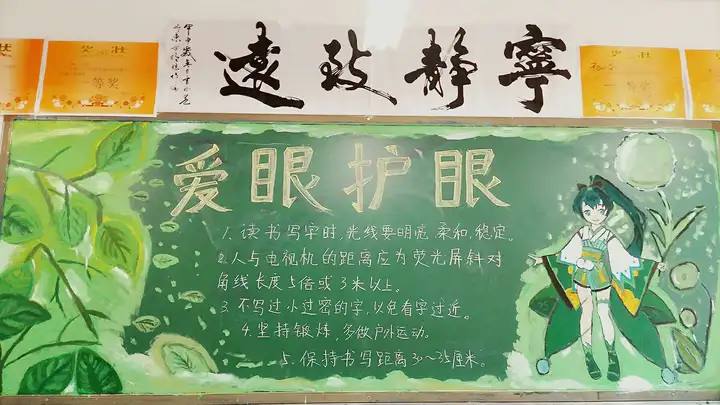 奖状
等奖
寧靜致遠
一等奖
爱眼护眼
1. 读书写字时,光线要明亮 柔和,稳定。
2.人与电视机的距离应为荧光屏斜对
角线长度5倍或3米以上。
3. 不写过小过密的字,以免看字过近。
4. 坚持锻炼,多做户外运动。
5. 保持书写距离30~35厘米。